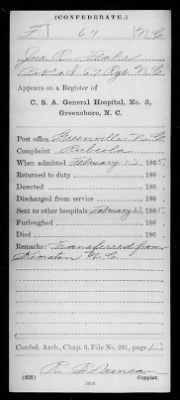 (CONFEDERATE.)
F 67 N.C.
Jno. R.
Co. 67 Regt. N.C.
Appears on a Register of
C. S. A. General Hospital, No. 3,
Greensboro, N. C.
Post office Greenville N.C.
Complaint Rubeola
When admitted February 1865.
Returned to duty 186 .
Deserted 186 .
Discharged from service 186 .
Sent to other hospitals February 1865.
Furloughed 186 .
Died 186 .
Remarks: Transferred from
Kinston N.C.
Confed. Arch., Chap. 6, File No. 291, page
(635) Copyist.